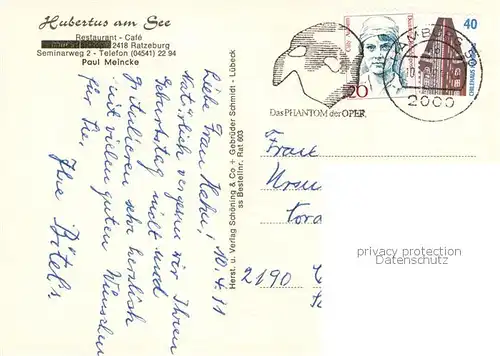 Hubertus am See
Restaurant - Café
2418 Ratzeburg
Seminarweg 2 - Telefon (04541) 22 94
Paul Meincke
Liebe Frau Hahn! 10.4.91
Natürlich vergessen wir Ihren
Geburtstag nicht und
gratulieren sehr herzlich
mit vielen guten Wünschen
für Sie.
Ihre
Herst. u. Verlag Schöning & Co + Gebrüder Schmidt - Lübeck
ss Bestellnr. Rat 603
Das PHANTOM der OPER,
20
40
CHILEHAUS
2000
Frau
2190
privacy protection
Datenschutz